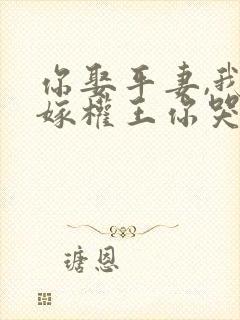 你娶平妻,我
嫁权王你哭
瑭恩